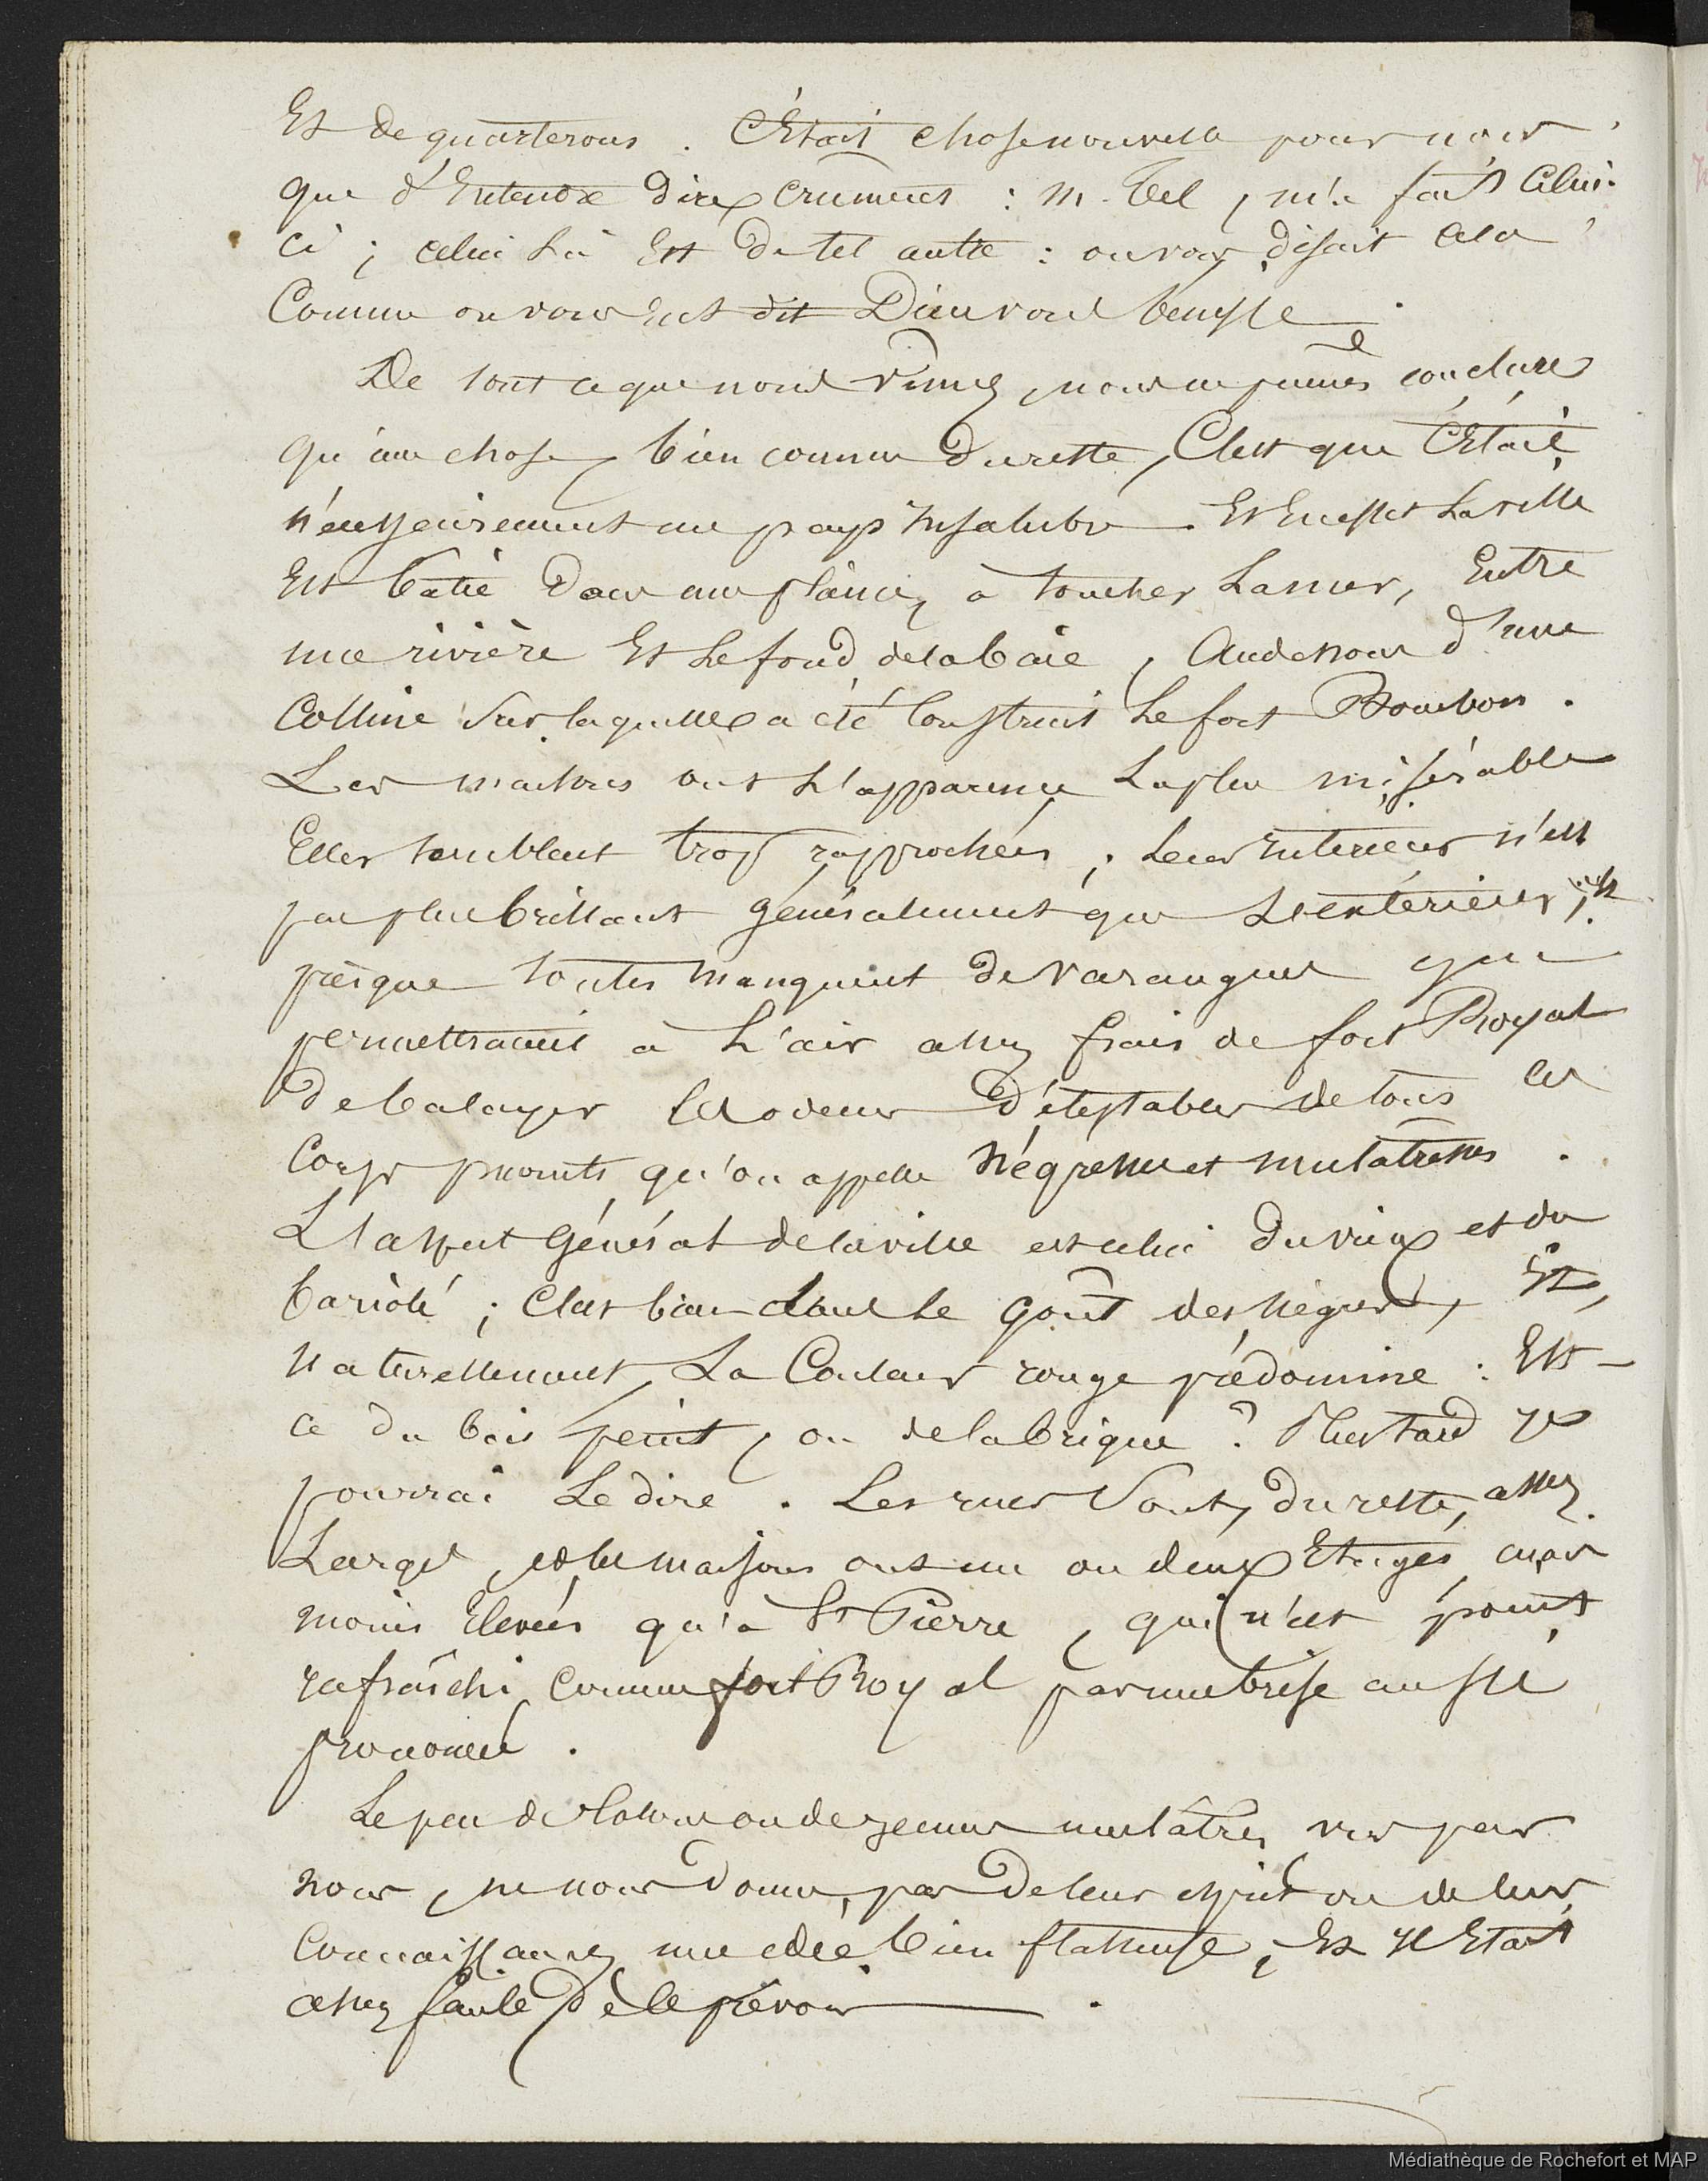 Et de quarterons. C'Etait chose nouvelle pour nous
que d'Entendre dire crument : M. Tel, m'a fait Celui-
ci ; celui là Est de tel autre : on vous disait cela
Comme on vous eut dit Dieu vous benisse.
De tout ce que nous vîmes, nous ne pûmes conclure
qu'une chose, bien connue du reste, C'est que C'était
un pays Insalubre. Et En effet La ville
Est batie dans une plaine, à toucher La mer, Entre
une rivière Et Le fond de la baie, Au dessous d'une
Colline sur laquelle a été Construit Le fort Bourbon.
Les ont L'apparence La plus misérable
Elles semblent trop rapprochées ; Leur Interieur n'est
pas plus brillant généralement que L'exterieur, et
presque toutes manquent de varangues qui
permettraient à L'air assez frais de fort Royal
de balayer les odeurs détestables de tous ces
Corps puants qu'on appelle Négresses et mulatresses.
L'aspect Général de la ville est celui du vieux et du
bariolé ; C'est bien dans le goût des nègres, Et,
naturellement, La Couleur rouge prédomine : Est-
ce du bois peint, ou de la brique ? Plus tard je
pourrai Le dire. Les rues sont, du reste, assez
Larges, et les maisons ont un ou deux Etages, mais
moins Elevées qu'à St Pierre, qui n'est point
rafraîchi comme fort Royal par une brise aussi
prononcée.
Le peu de colons ou de jeunes mulâtres vus par
nous, ne nous donne, pas de leur esprit ou de leurs
Connaissances, une idée bien flatteuse, Et Il Etait
assez facile de le prévoir.
Médiathèque de Rochefort et MAP